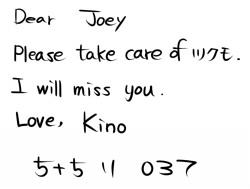 Dear Joey
Please take care of ツクモ.
I will miss you.
Love, Kino
ち+ち リ 037